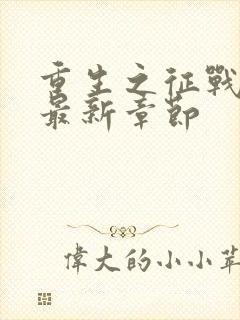 重生之征戰
最新章節
偉大的小小苹